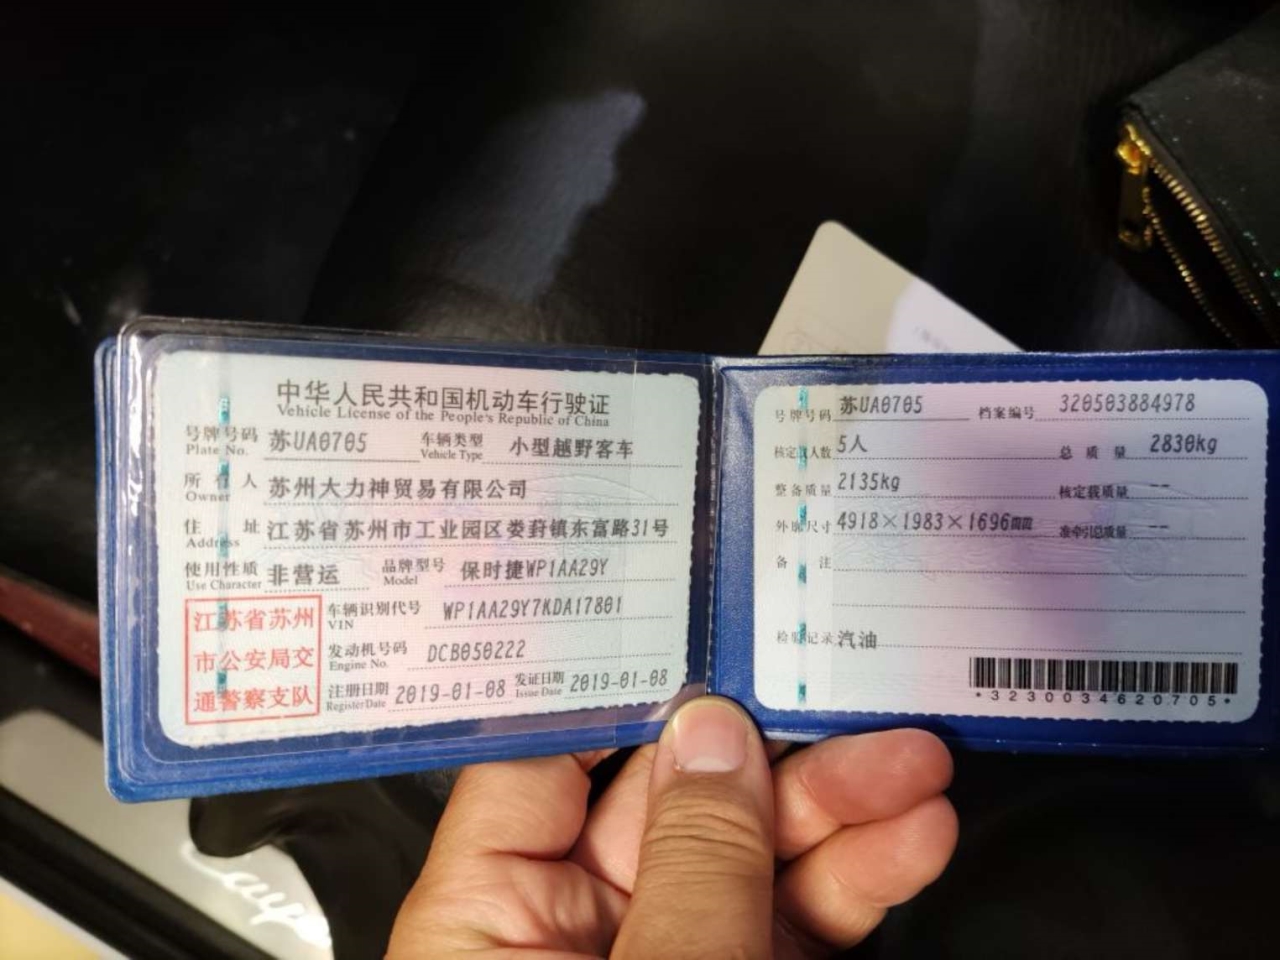 中华人民共和国机动车行驶证
Vehicle License of the People's Republic of China
号牌号码 苏UA0705 车辆类型 小型越野客车
Plate No. Vehicle Type
所有人 苏州大力神贸易有限公司
Owner
住址 江苏省苏州市工业园区娄葑镇东富路31号
Address
使用性质 非营运 品牌型号 保时捷WP1AA29Y
Use Character Model
江苏省苏州
市公安局交
通警察支队
车辆识别代号 WP1AA29Y7KDA17801
VIN
发动机号码 DCB050222
Engine No.
注册日期 2019-01-08 发证日期 2019-01-08
Register Date Issue Date
号牌号码 苏UA0705 档案编号 320503884978
核定载人数 5人 总质量 2830kg
整备质量 2135kg 核定载质量 --
外廓尺寸 4918×1983×1696mm 准牵引总质量 --
备注
检验记录 汽油
*3230034620705*